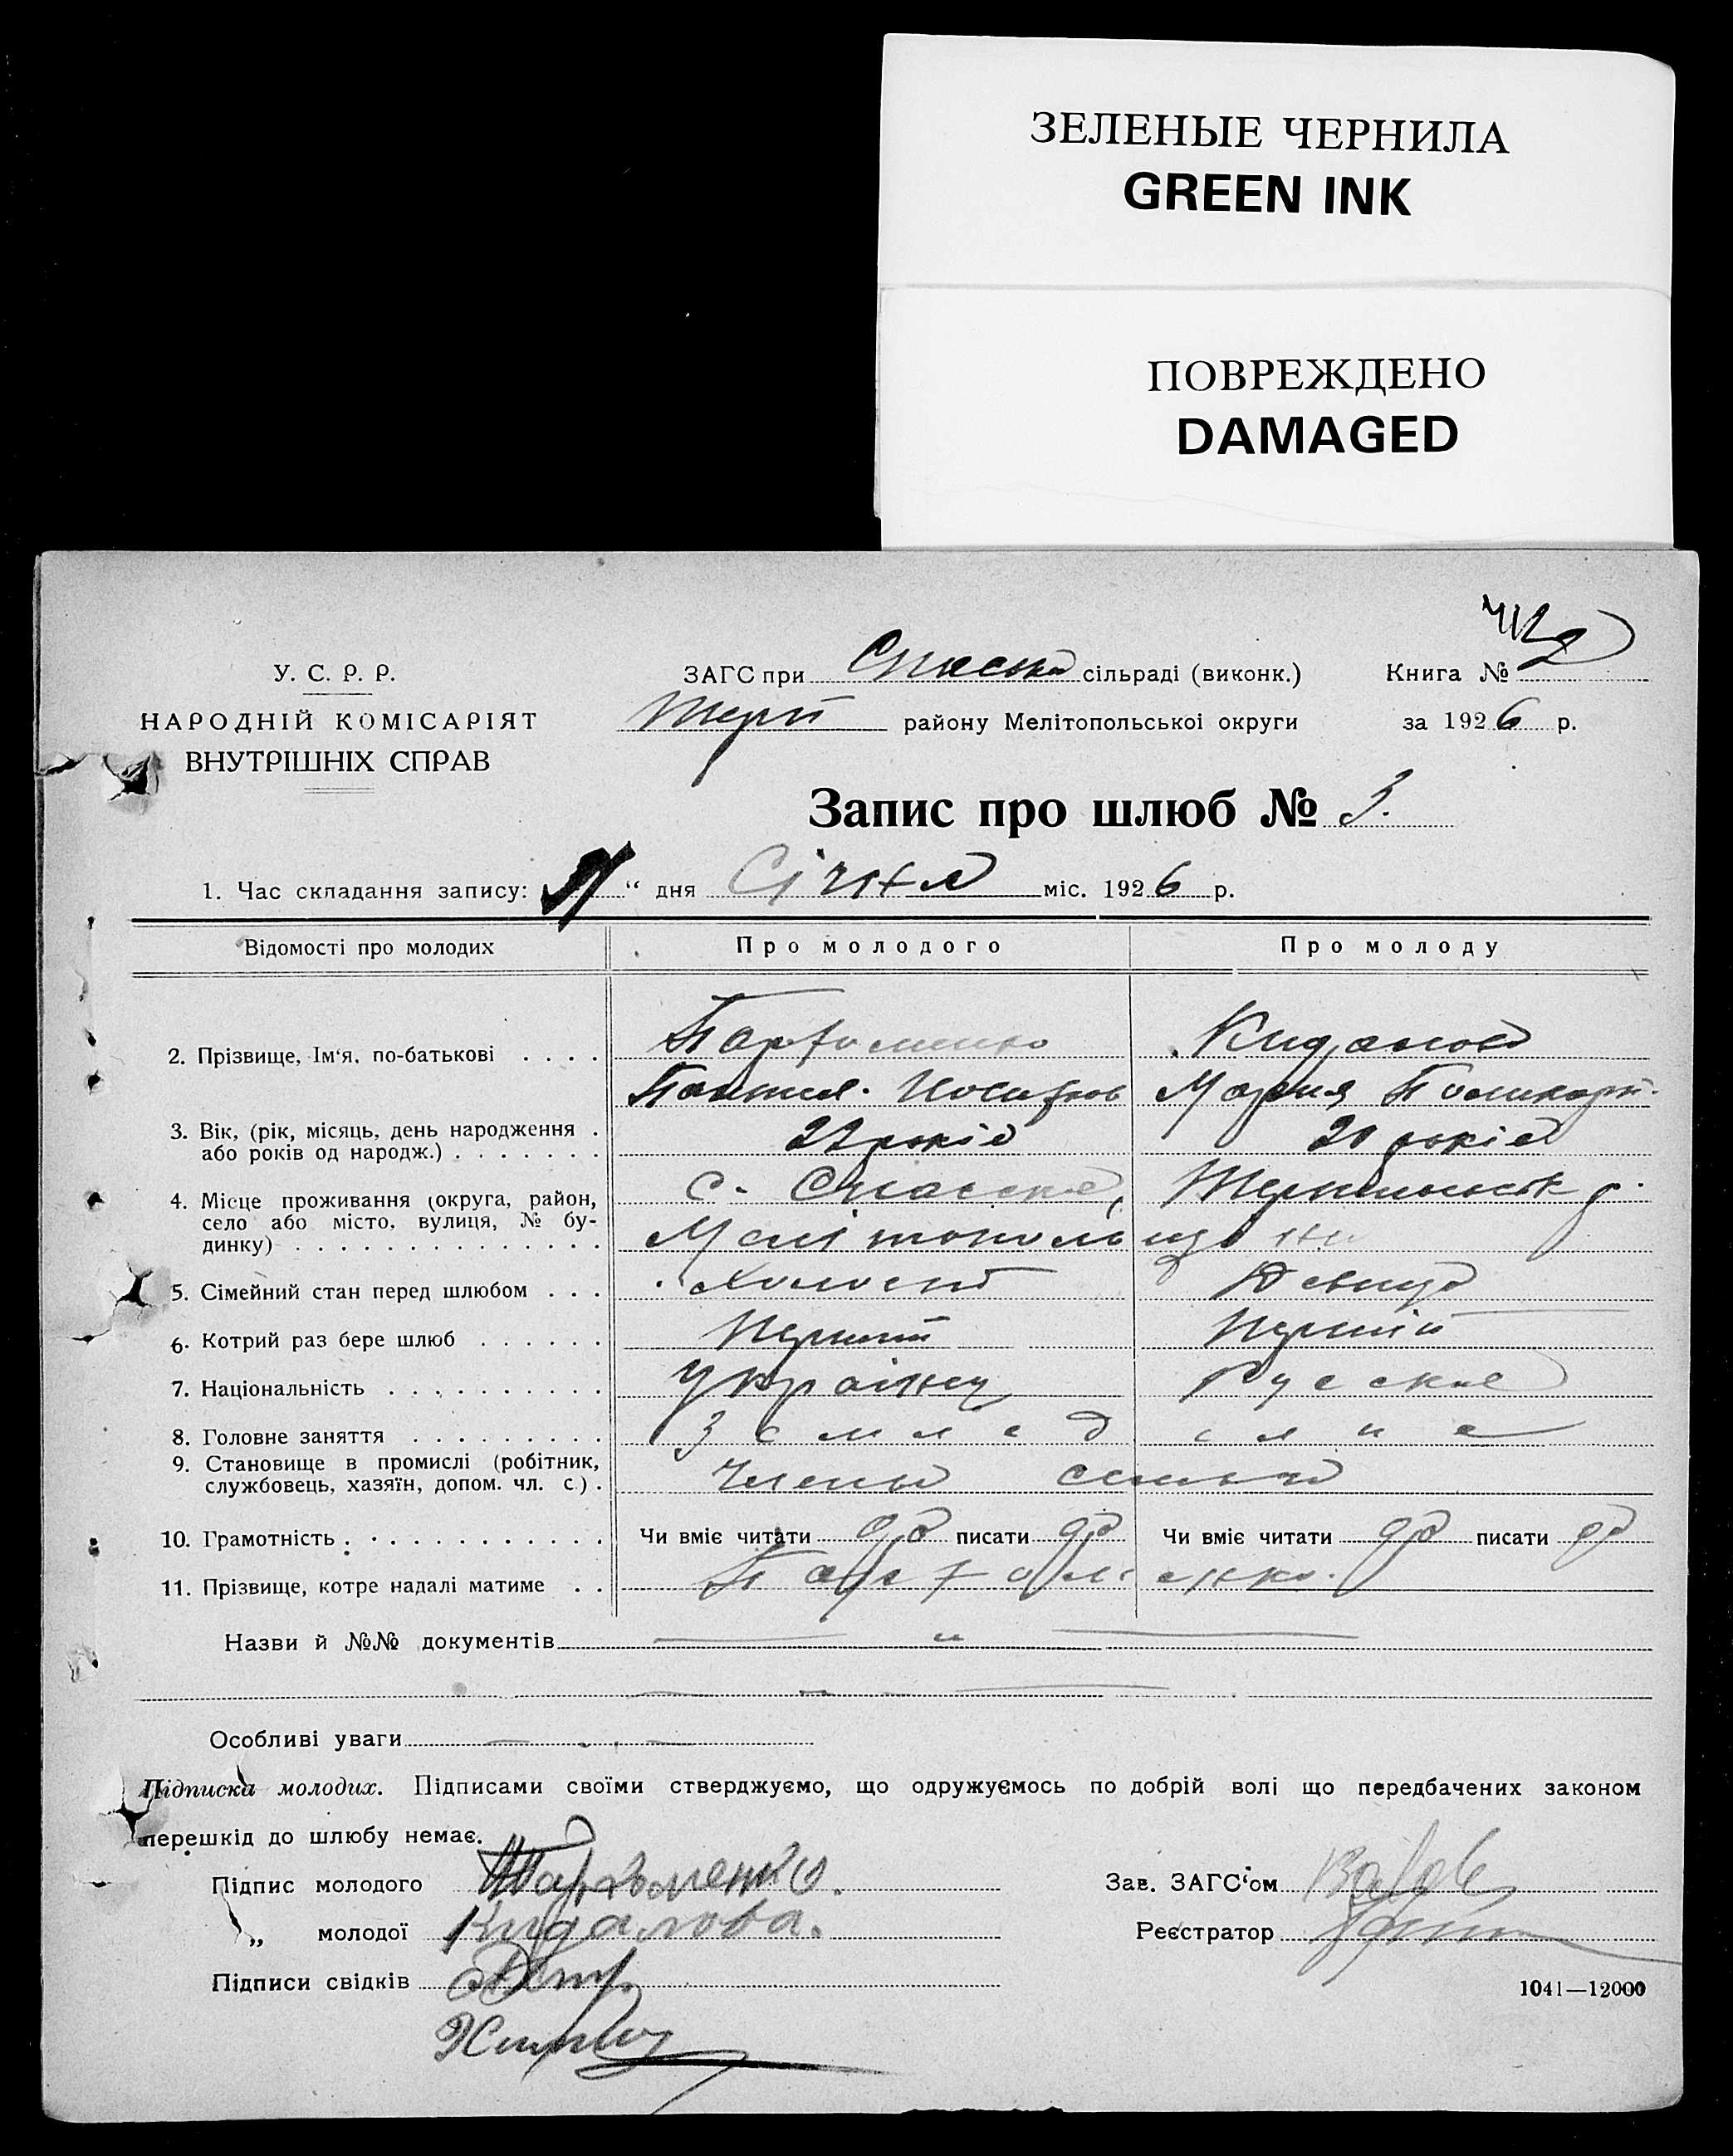 ЗЕЛЕНЫЕ ЧЕРНИЛА
GREEN INK
ПОВРЕЖДЕНО
DAMAGED
У. С. Р. Р.
НАРОДНІЙ КОМІСАРІЯТ
ВНУТРІШНІХ СПРАВ
ЗАГС при сільраді (виконк.)
району Мелітопольської округи
Книга №
за 1926 р.
Запис про шлюб № 3.
1. Час складання запису: “ дня Січня міс. 1926 р.
Відомості про молодих Про молодого Про молоду
2. Прізвище, Ім‘я, по-батькові . . . . Парфоменко
Мария
3. Вік, (рік, місяць, день народження . 22 років 20 років
або років од народж.) . . . . . . .
4. Місце проживання (округа, район, с.
село або місто, вулиця, № бу-
динку) . . . . . . . . . . . . . . Мелітопольщіни
5. Сімейний стан перед шлюбом . . . Холост Девица
6. Котрий раз бере шлюб . . . . . . Перший Перший
7. Національність . . . . . . . . . . Українец Русская
8. Головне заняття . . . . . . . . . Землед
9. Становище в промислі (робітник, Члены семьи
службовець, хазяїн, допом. чл. с.) .
10. Грамотність . . . . . . . . . . . . Чи вміє читати да писати да Чи вміє читати да писати да
11. Прізвище, котре надалі матиме . . Парфоменко.
Назви й №№ документів — „ —
Особливі уваги
Підписка молодих. Підписами своїми стверджуємо, що одружуємось по добрій волі що передбачених законом
перешкід до шлюбу немає.
Підпис молодого Парфоменко.
„ молодої Кидалова.
Підписи свідків
Зав. ЗАГС‘ом
Реєстратор
1041—12000